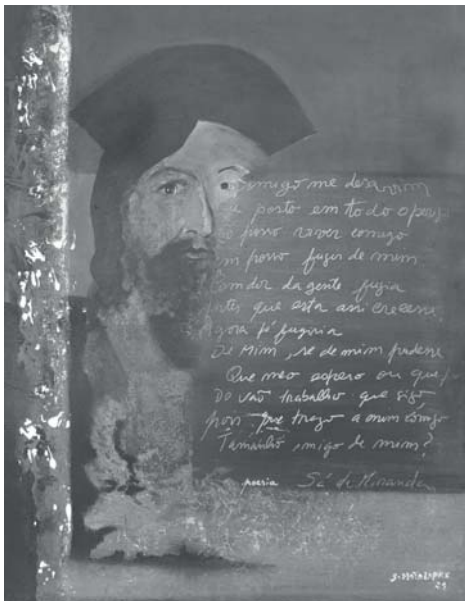 omigo me desavim
posto em todo o perig
posso viver comigo
posso fugir de mim
Com dor da gente fugia
que esta assi crecesse
gora já fugiria
De mim, se de mim pudesse
Que meo espero ou que
Do vão trabalho que sigo
pois que trago a mim comigo
Tamanho imigo de mim?
poesia Sá de Miranda